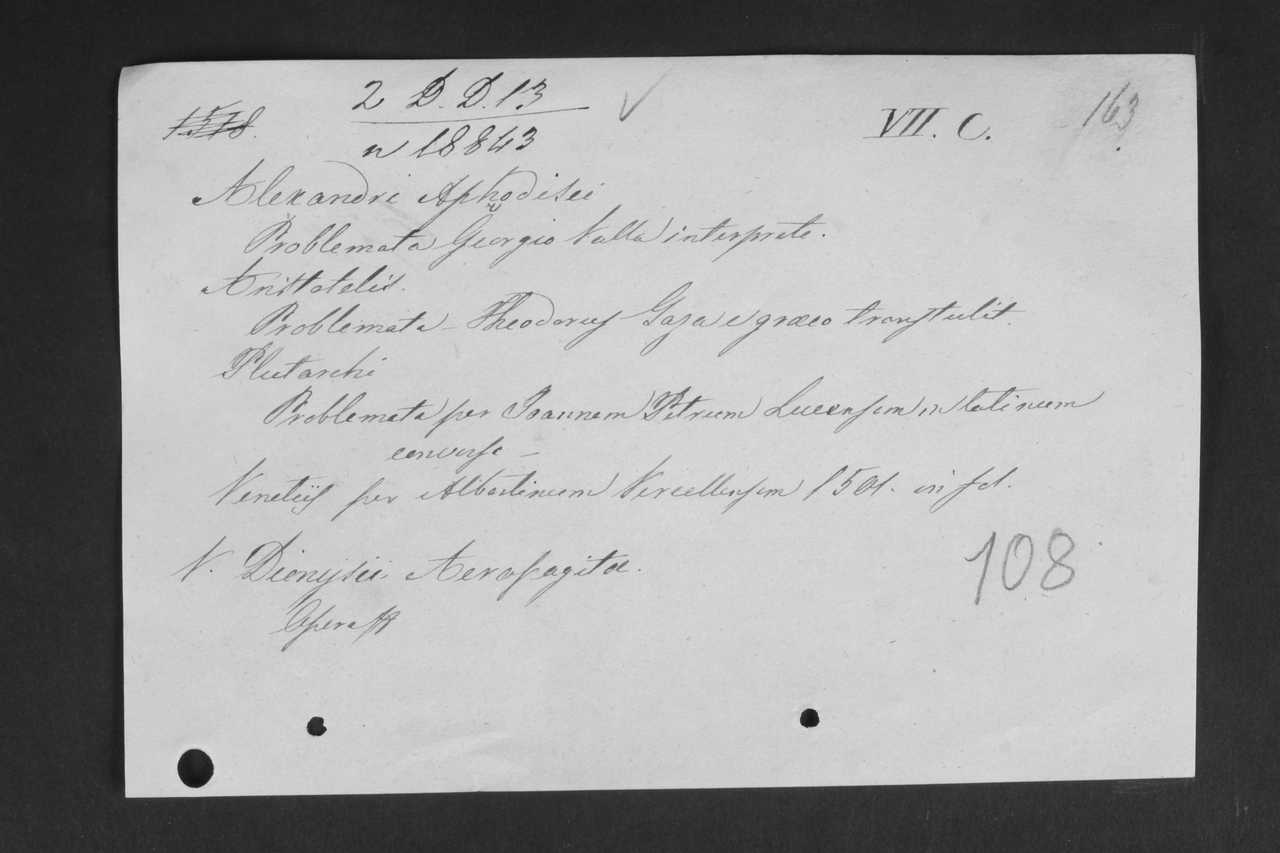 2 D. D. 13
1518.
n 18843
VII. C.
163
Alexandri Aphodisei
Problemata Georgio Valla interprete.
Aristotelis.
Problemata - Theodorus Gaza e græco transtulit.
Plutarchi
Problemata per Joannem Petrum Lucensem in latinum
conversa -
Venetiis per Albertinum Vercellensem 1501. in fol.
V. Dionysii Aeropagitæ.
Opera
108